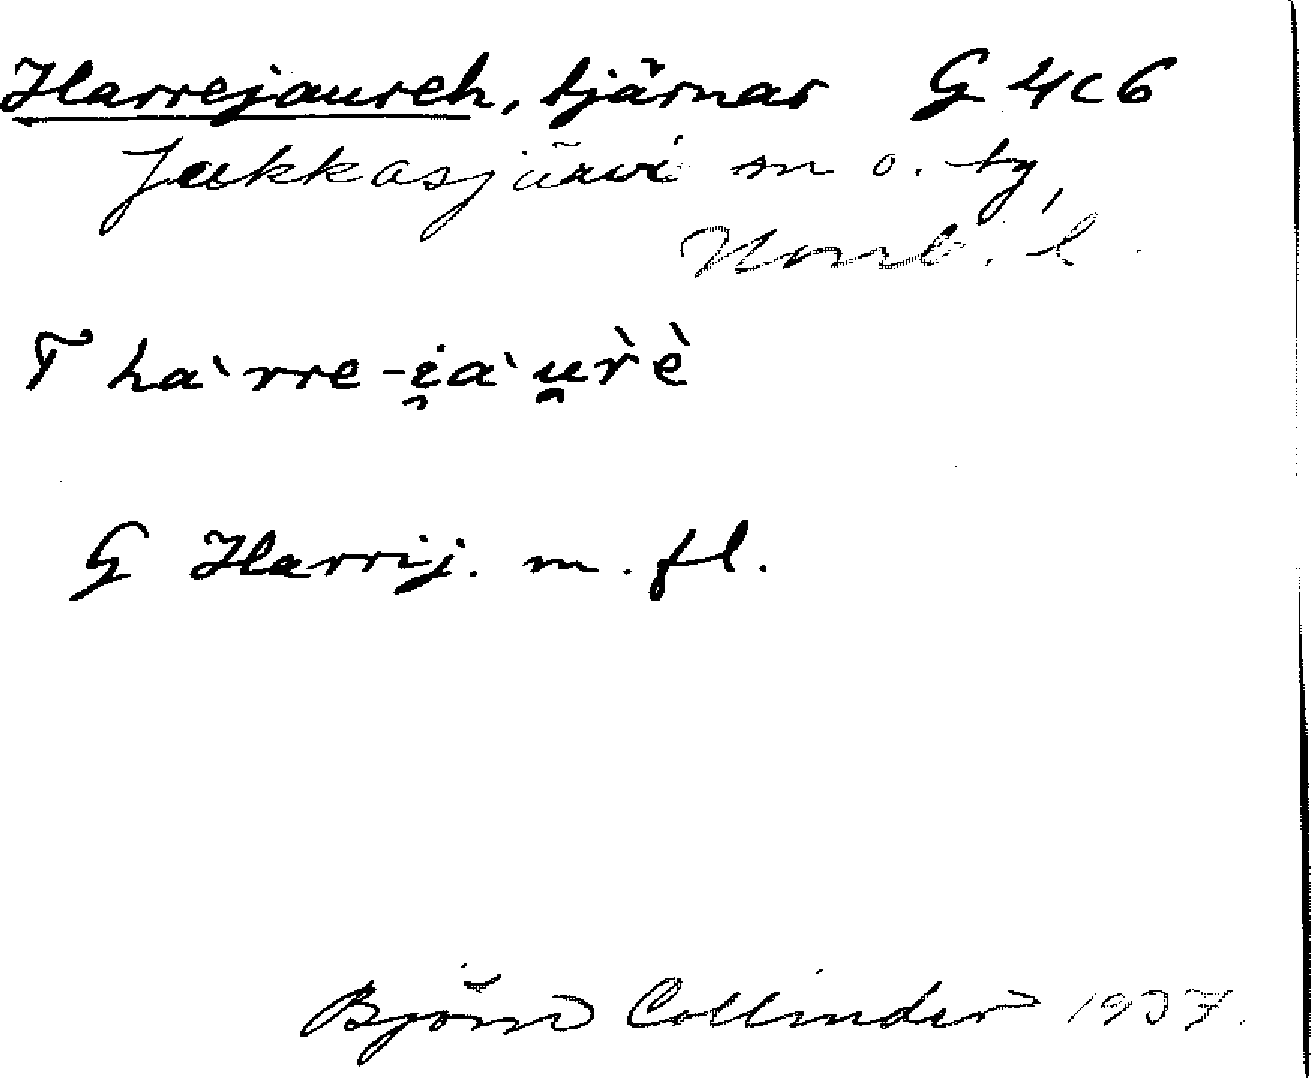 Harrejaureh, tjärnar G 4c6
Jukkasjärvi sn o. tg,
Norrb. l.
T ha`rre-i̯a`u̯r̀è
G Harrij. m. fl.
Björn Collinder 1937.